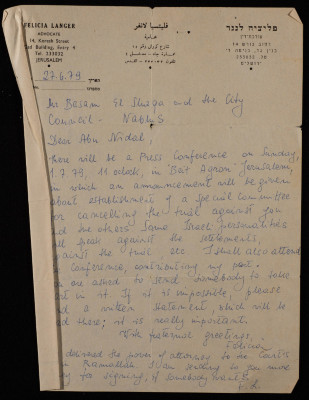 FELICIA LANGER
ADVOCATE
14, Koresh Street
Entry 4
Tel. 233632
JERUSALEM
فليتسيا لانغر
محامية
القدس
פליציה לנגר
עורכת-דין
רחוב כורש 14
טל. 233632
ירושלים
27.6.79
Mr Basam El Shaga and the City
Council - Nablus
Dear Abu Nidal,
There will be a Press Conference on Sunday,
1.7.79, 11 oclock, in "Bet Agron" Jerusalem,
in which an announcement will be given
about establishment of a special Committee
for cancelling the trial against you
and the others. Some Israeli personalities
will speak against the settlements,
against the trial, etc. I shall also attend
conference, contributing my part.
are asked to send somebody to take
part in it. If it is impossible, please
a written statement, which will be
read there; it is really important.
With fraternal greetings,
Felicia
delivered the power of attorney to the Courts
in Ramallah. I am sending to you more
for signing, if somebody wants.